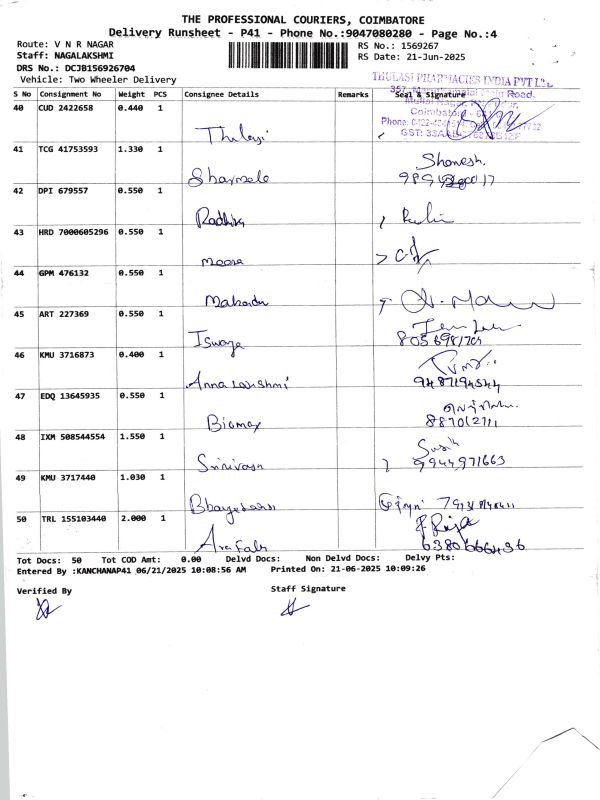 THE PROFESSIONAL COURIERS, COIMBATORE
Delivery Runsheet - P41 - Phone No.:9047080280 - Page No.:4
Route: V N R NAGAR
RS No.: 1569267
Staff: NAGALAKSHMI
RS Date: 21-Jun-2025
DRS No.: DCJB156926704
Vehicle: Two Wheeler Delivery
THULASI PHARMACIES INDIA PVT LTD.
S No Consignment No Weight PCS Consignee Details Remarks Seal & Signature
40 CUD 2422658 0.440 1
Thulasi
41 TCG 41753593 1.330 1
Sharmele
Shanesh.
42 DPI 679557 0.550 1
Radhika
43 HRD 7000605296 0.550 1
meera
44 GPM 476132 0.550 1
45 ART 227369 0.550 1
Iswarya
46 KMU 3716873 0.400 1
Anna Lakshmi
9487194544
47 EDQ 13645935 0.550 1
Biomax
48 IXM 508544554 1.550 1
Srinivasn
9944971663
49 KMU 3717440 1.030 1
50 TRL 155103440 2.000 1
6380666436
Tot Docs: 50 Tot COD Amt: 0.00 Delvd Docs: Non Delvd Docs: Delvy Pts:
Entered By :KANCHANAP41 06/21/2025 10:08:56 AM Printed On: 21-06-2025 10:09:26
Verified By
Staff Signature